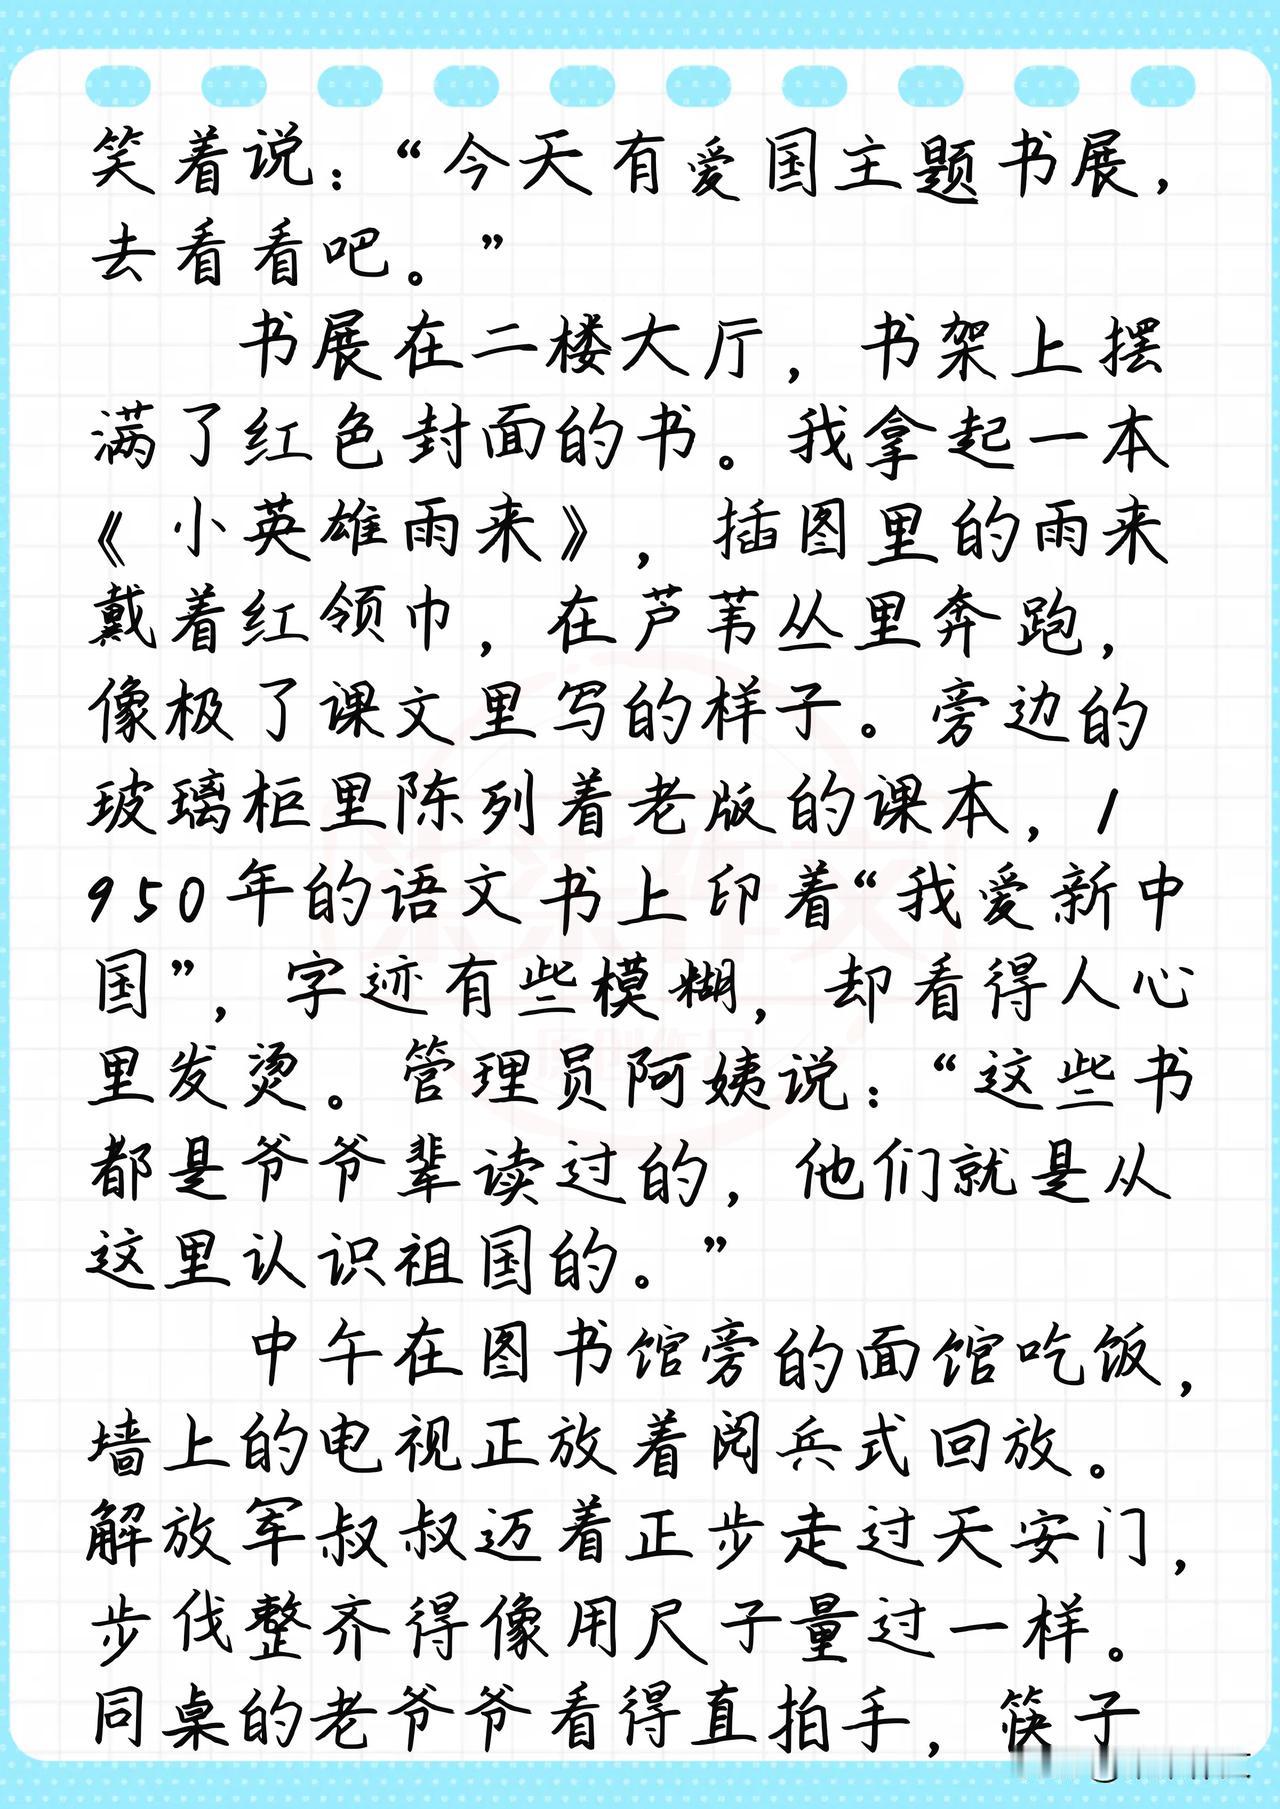 笑着说：“今天有爱国主题书展，
去看看吧。”
书展在二楼大厅，书架上摆
满了红色封面的书。我拿起一本
《小英雄雨来》，插图里的雨来
戴着红领巾，在芦苇丛里奔跑，
像极了课文里写的样子。旁边的
玻璃柜里陈列着老版的课本，1
950年的语文书上印着“我爱新中
国”，字迹有些模糊，却看得人心
里发烫。管理员阿姨说：“这些书
都是爷爷辈读过的，他们就是从
这里认识祖国的。”
中午在图书馆旁的面馆吃饭，
墙上的电视正放着阅兵式回放。
解放军叔叔迈着正步走过天安门，
步伐整齐得像用尺子量过一样。
同桌的老爷爷看得直拍手，筷子